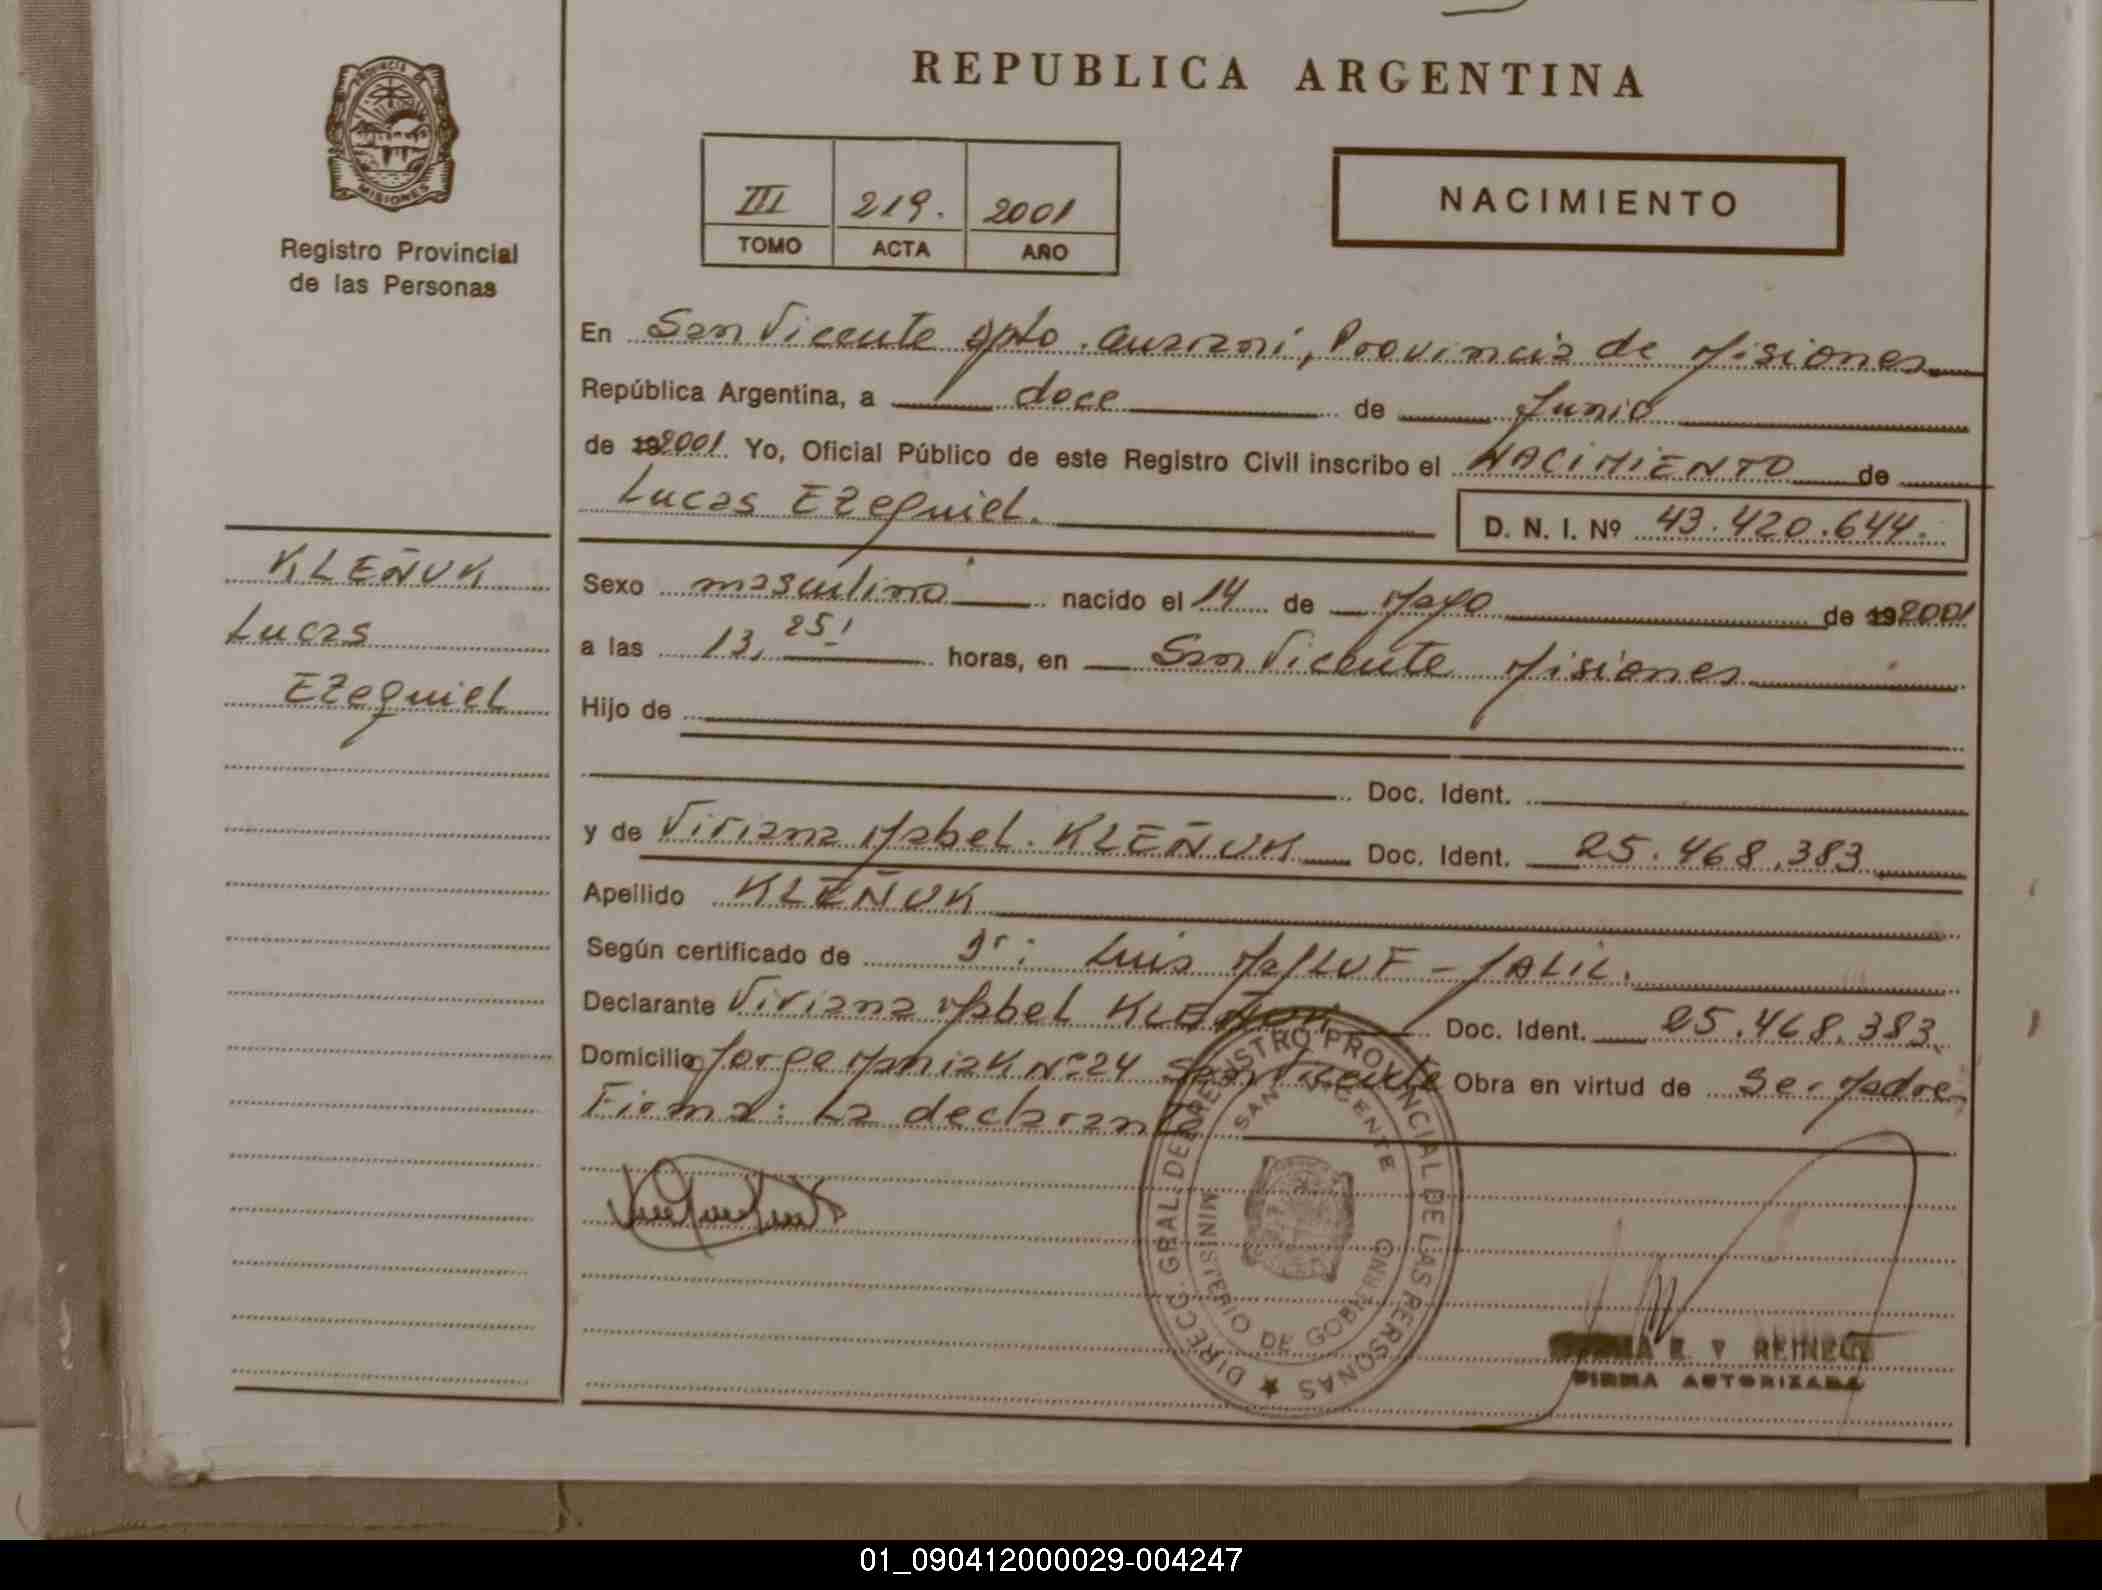 REPUBLICA ARGENTINA
PROVINCIA DE
MISIONES
Registro Provincial
de las Personas
III 219. 2001
TOMO ACTA AÑO
NACIMIENTO
En San Vicente Dpto. Guarani, Provincia de Misiones
República Argentina, a doce de Junio
de 192001. Yo, Oficial Público de este Registro Civil inscribo el NACIMIENTO de
Lucas Ezequiel. D. N. I. Nº 43.420.644.
KLEÑUK
Lucas
Ezequiel
Sexo masculino nacido el 14 de Mayo de 192001
a las 13,25! horas, en San Vicente Misiones
Hijo de
Doc. Ident.
y de Viviana Mabel. KLEÑUK Doc. Ident. 25.468.383
Apellido KLEÑUK
Según certificado de Dr: Luis MALLUF - JALIL.
Declarante Viviana Mabel KLEÑUK Doc. Ident. 25.468.383.
Domicilio Jorge Maniak Nº 24 San Vicente Obra en virtud de Ser Madre
Firma: La declarante
DIRECC. GRAL. DEL REGISTRO PROVINCIAL DE LAS PERSONAS
SAN VICENTE
MINISTERIO DE GOBIERNO
E. V REINECK
FIRMA AUTORIZADA
01_090412000029-004247